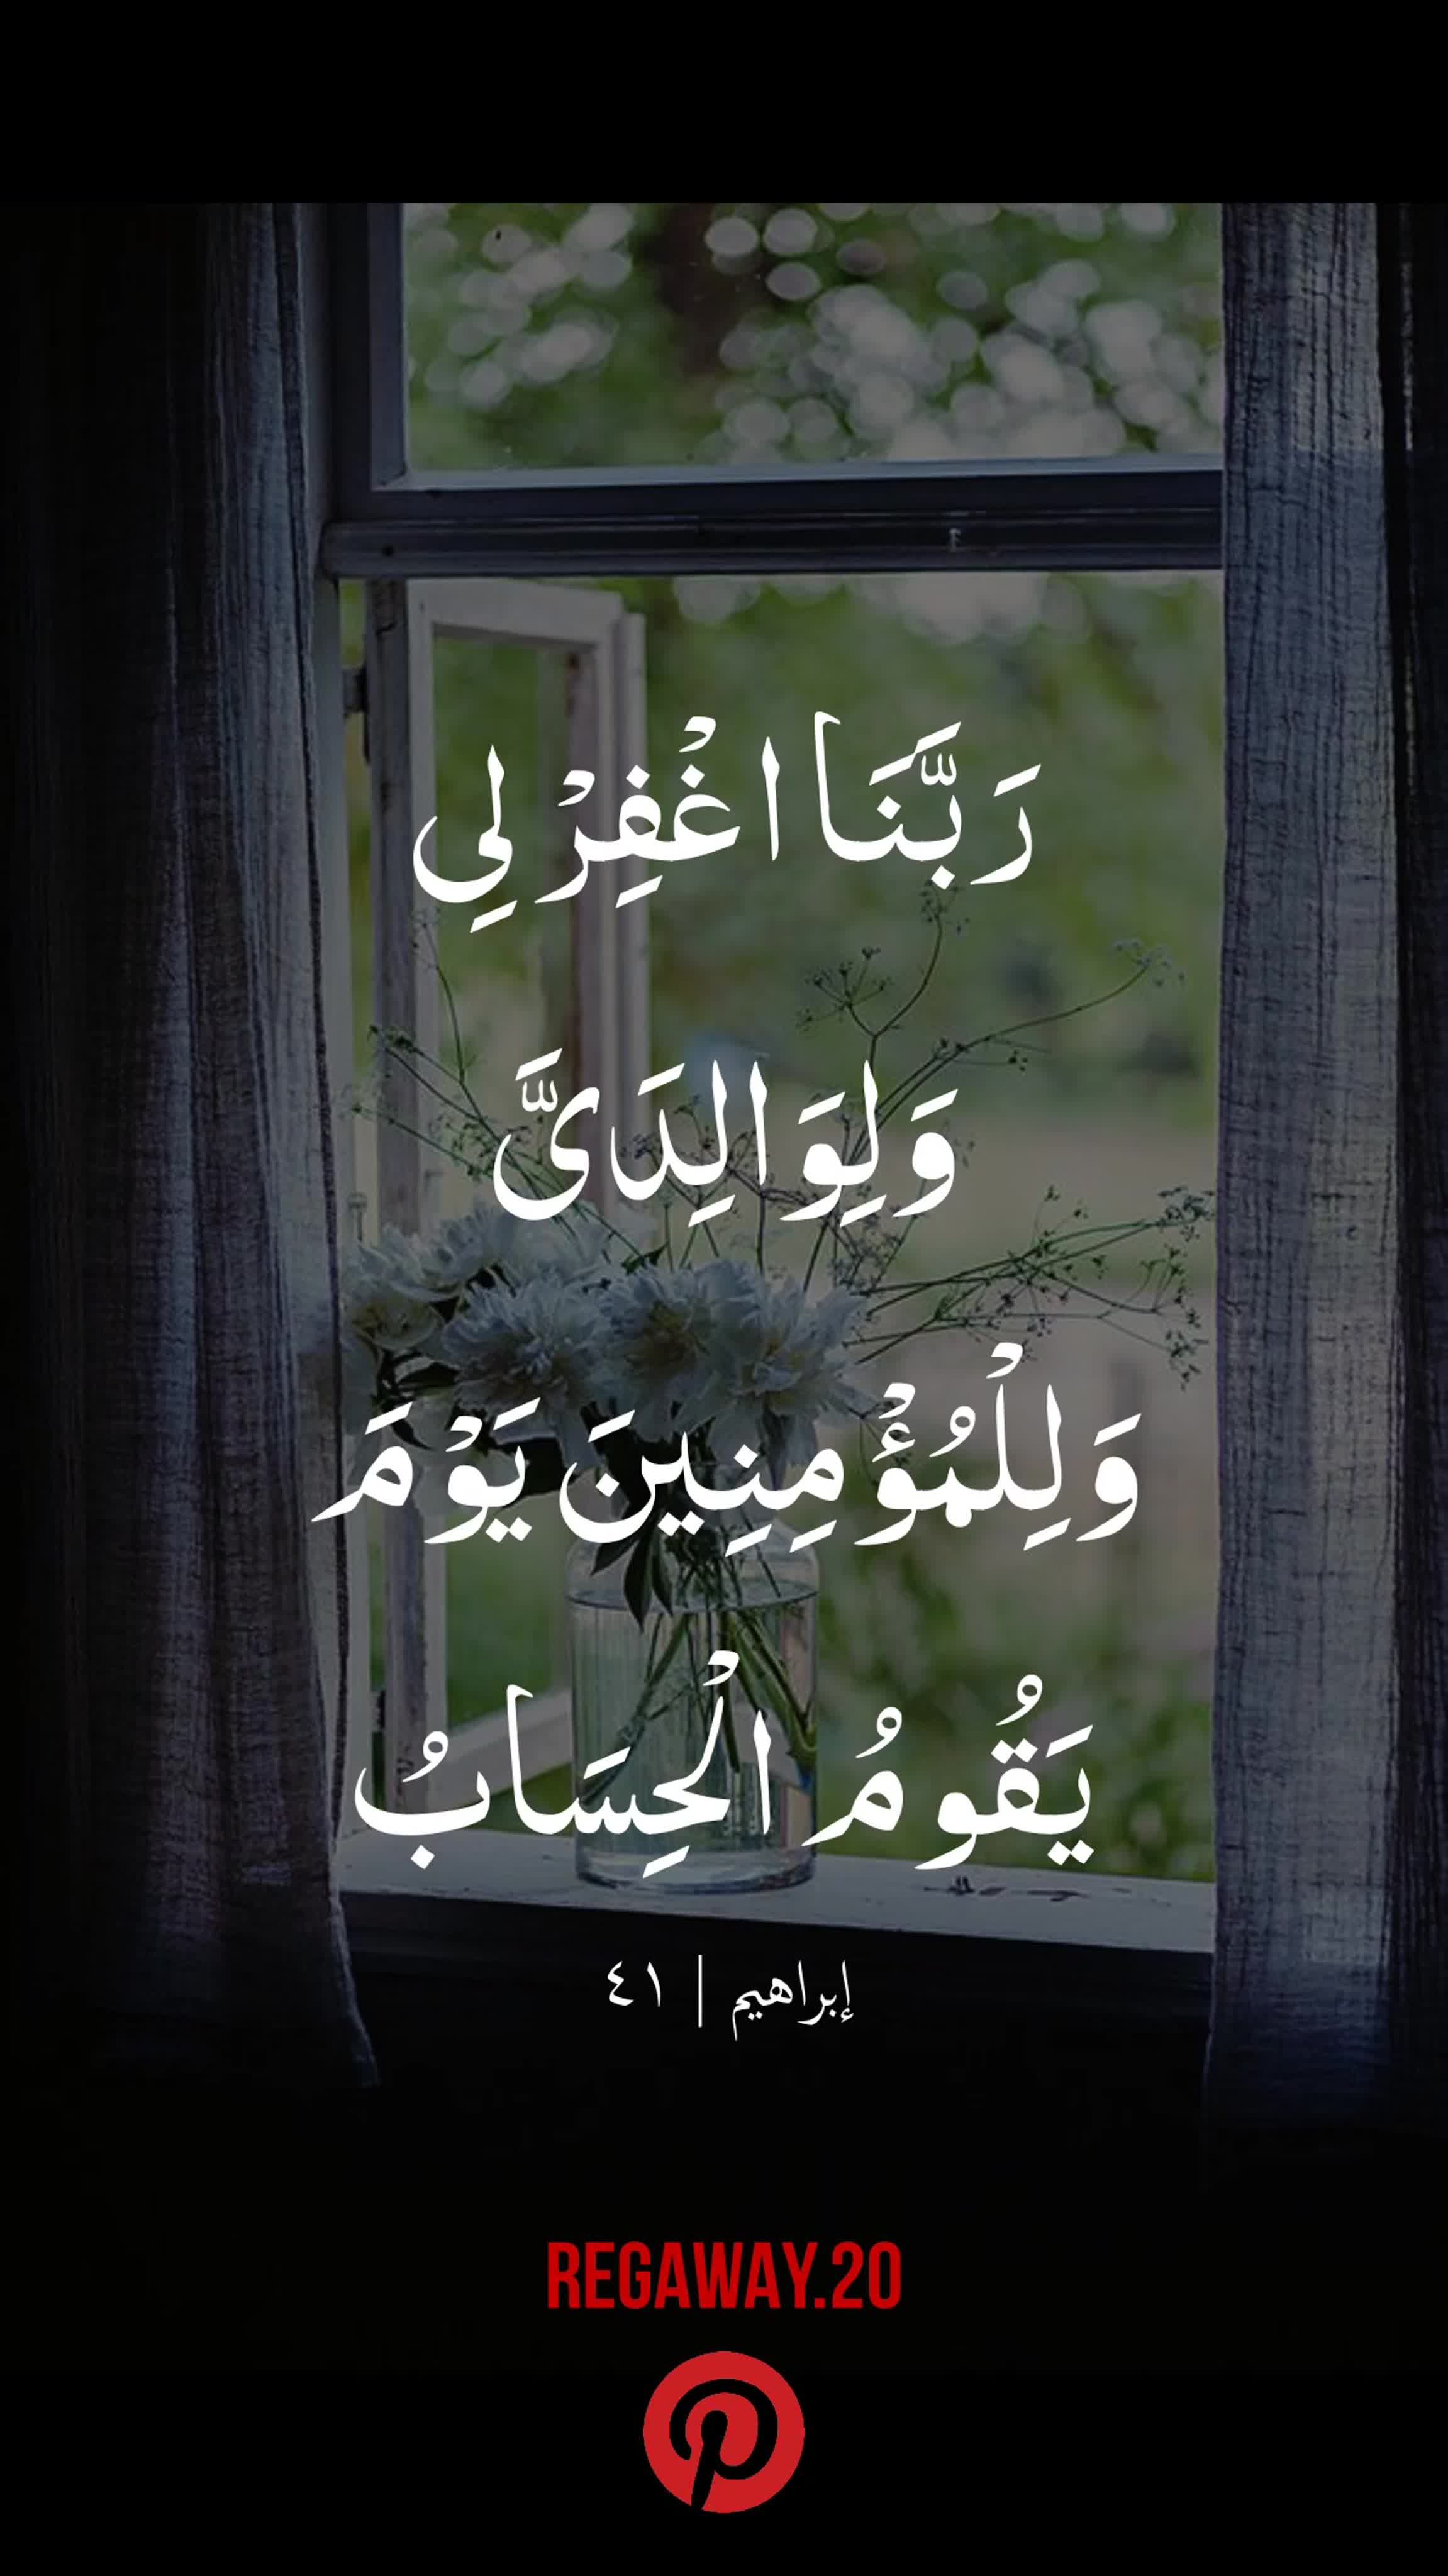 رَبَّنَا اغْفِرْ لِي
وَلِوَالِدَىَّ
وَلِلْمُؤْمِنِينَ يَوْمَ
يَقُومُ الْحِسَابُ
إبراهيم | ٤١
REGAWAY.20